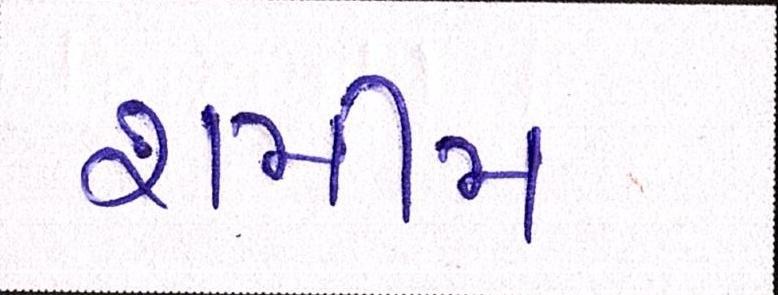 શમીમ